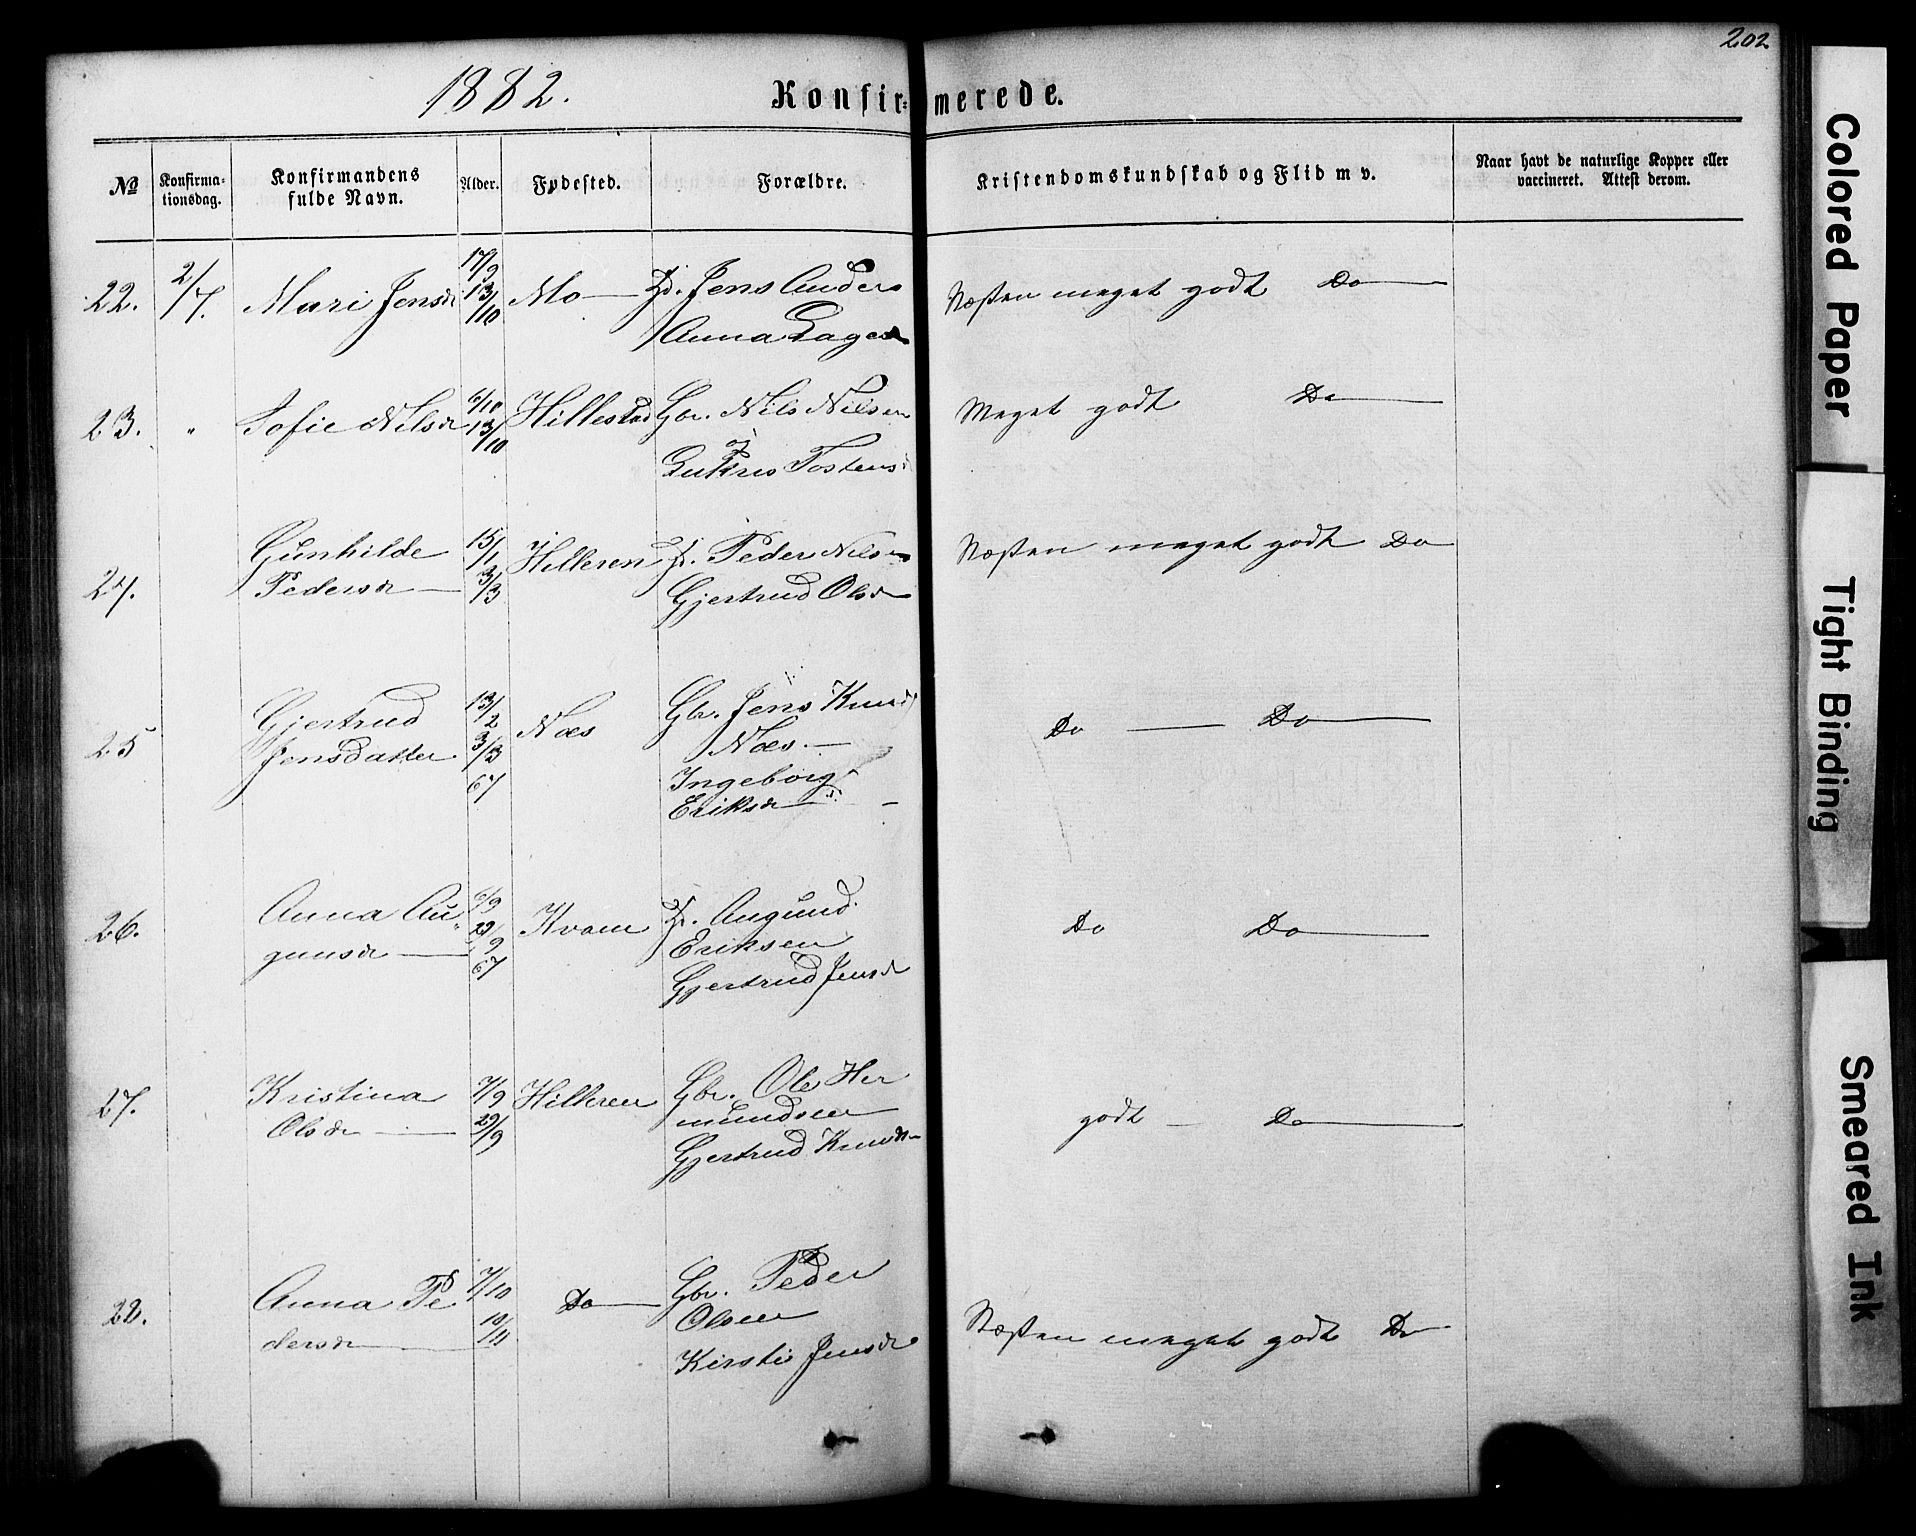 202
1882.
Konfir=merede.
№ Konfirma-tionsdag. Konfirmandens fulde Navn. Alder. Fødested. Forældre. Kristendomskundskab og Flid m v. Naar havt de naturlige Kopper eller vaccineret. Attest derom.
22. 2/7. Mari Jensdr 17/9 Mo Jens Anders Næsten meget godt Do
13/10 Anna
23. " Sofie Nilsdr 6/10 Hillestad Gbr. Nils Nilsen Meget godt Do
13/10 og
Tostens
Gunhilde 15/1 Hilleren Peder Nilsen Næsten meget godt Do
24. Pedersdr 3/3 Gjertrud Olsdr
Gjertrud 13/2 Næs Gbr. Jens Knud Do Do
25 Jensdatter 3/3 Næs
67 Ingeborg
Eriksdr
26. Anna Au 6/9 Kvam Augund Do Do
gunsdr 29/9 Eriksen
67 Gjertrud Jensdr
27. Kristina 7/9 Hilleren Gbr. Ole Her godt Do
Olsdr 29/9 mundsen
Gjertrud Knudsdr
28. Anna Pe 7/10 Do Gbr. Peder Næsten meget godt Do
dersdr 10/11 Olsen
Kirsti Jensdr
Colored Paper
Tight Binding
Smeared Ink